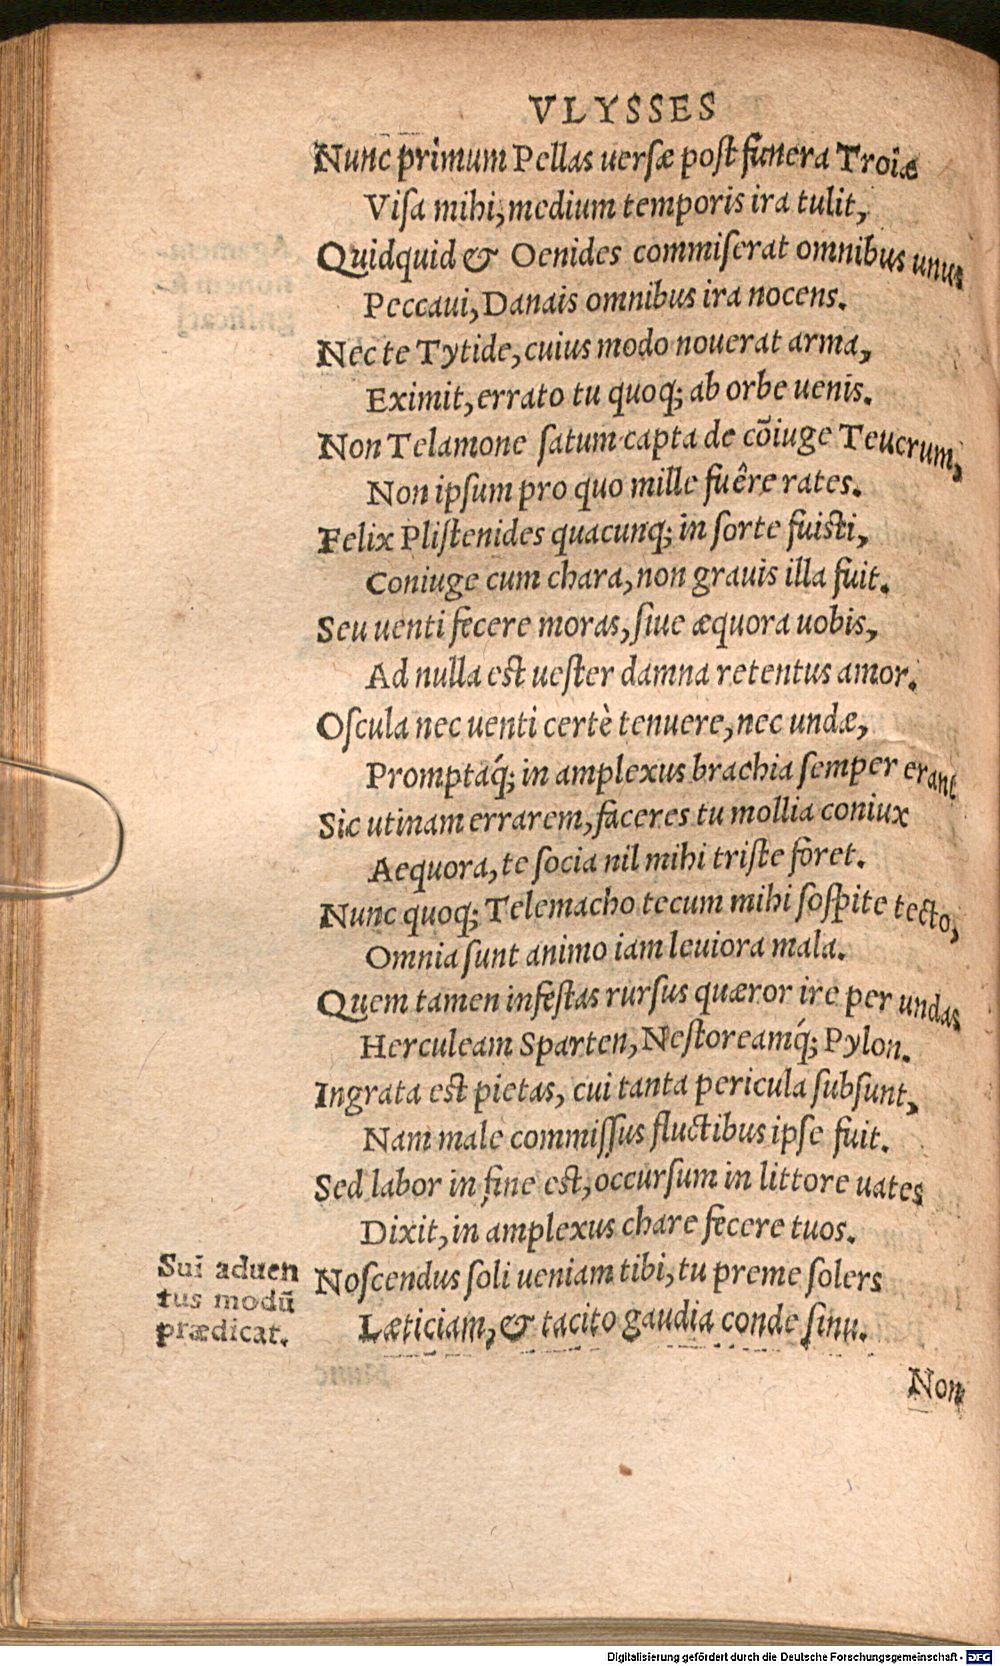 VLYSSES
Nunc primum Pellas uersæ post funera Troiæ
Visa mihi, medium temporis ira tulit,
Quidquid & Oenides commiserat omnibus unus
Peccaui, Danais omnibus ira nocens.
Nec te Tytide, cuius modo nouerat arma,
Eximit, errato tu quoq; ab orbe uenis.
Non Telamone satum capta de cõiuge Teucrum,
Non ipsum pro quo mille fuêre rates.
Felix Plistenides quacunq; in sorte fuisti,
Coniuge cum chara, non grauis illa fuit.
Seu uenti fecere moras, siue æquora uobis,
Ad nulla est uester damna retentus amor.
Oscula nec uenti certè tenuere, nec undæ,
Promptaq́; in amplexus brachia semper erant
Sic utinam errarem, faceres tu mollia coniux
Aequora, te socia nil mihi triste foret.
Nunc quoq; Telemacho tecum mihi sospite tecto,
Omnia sunt animo iam leuiora mala.
Quem tamen infestas rursus quæror ire per undas
Herculeam Sparten, Nestoreamq́; Pylon.
Ingrata est pietas, cui tanta pericula subsunt,
Nam male commissus fluctibus ipse fuit.
Sed labor in fine est, occursum in littore uates
Dixit, in amplexus chare fecere tuos.
Sui aduen
tus modũ
prædicat.
Noscendus soli ueniam tibi, tu preme solers
Læticiam, & tacito gaudia conde sinu.
Non
Digitalisierung gefördert durch die Deutsche Forschungsgemeinschaft - DFG